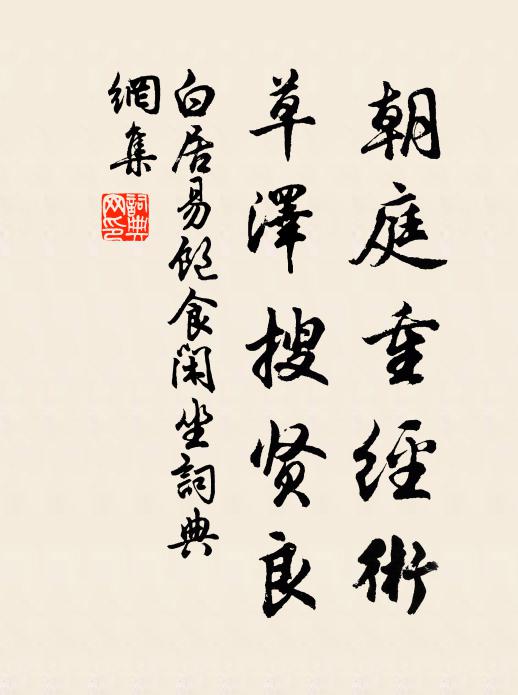 朝庭重經術
草澤搜贤良
白居易飽食閑坐詞典
網集
詞典网印